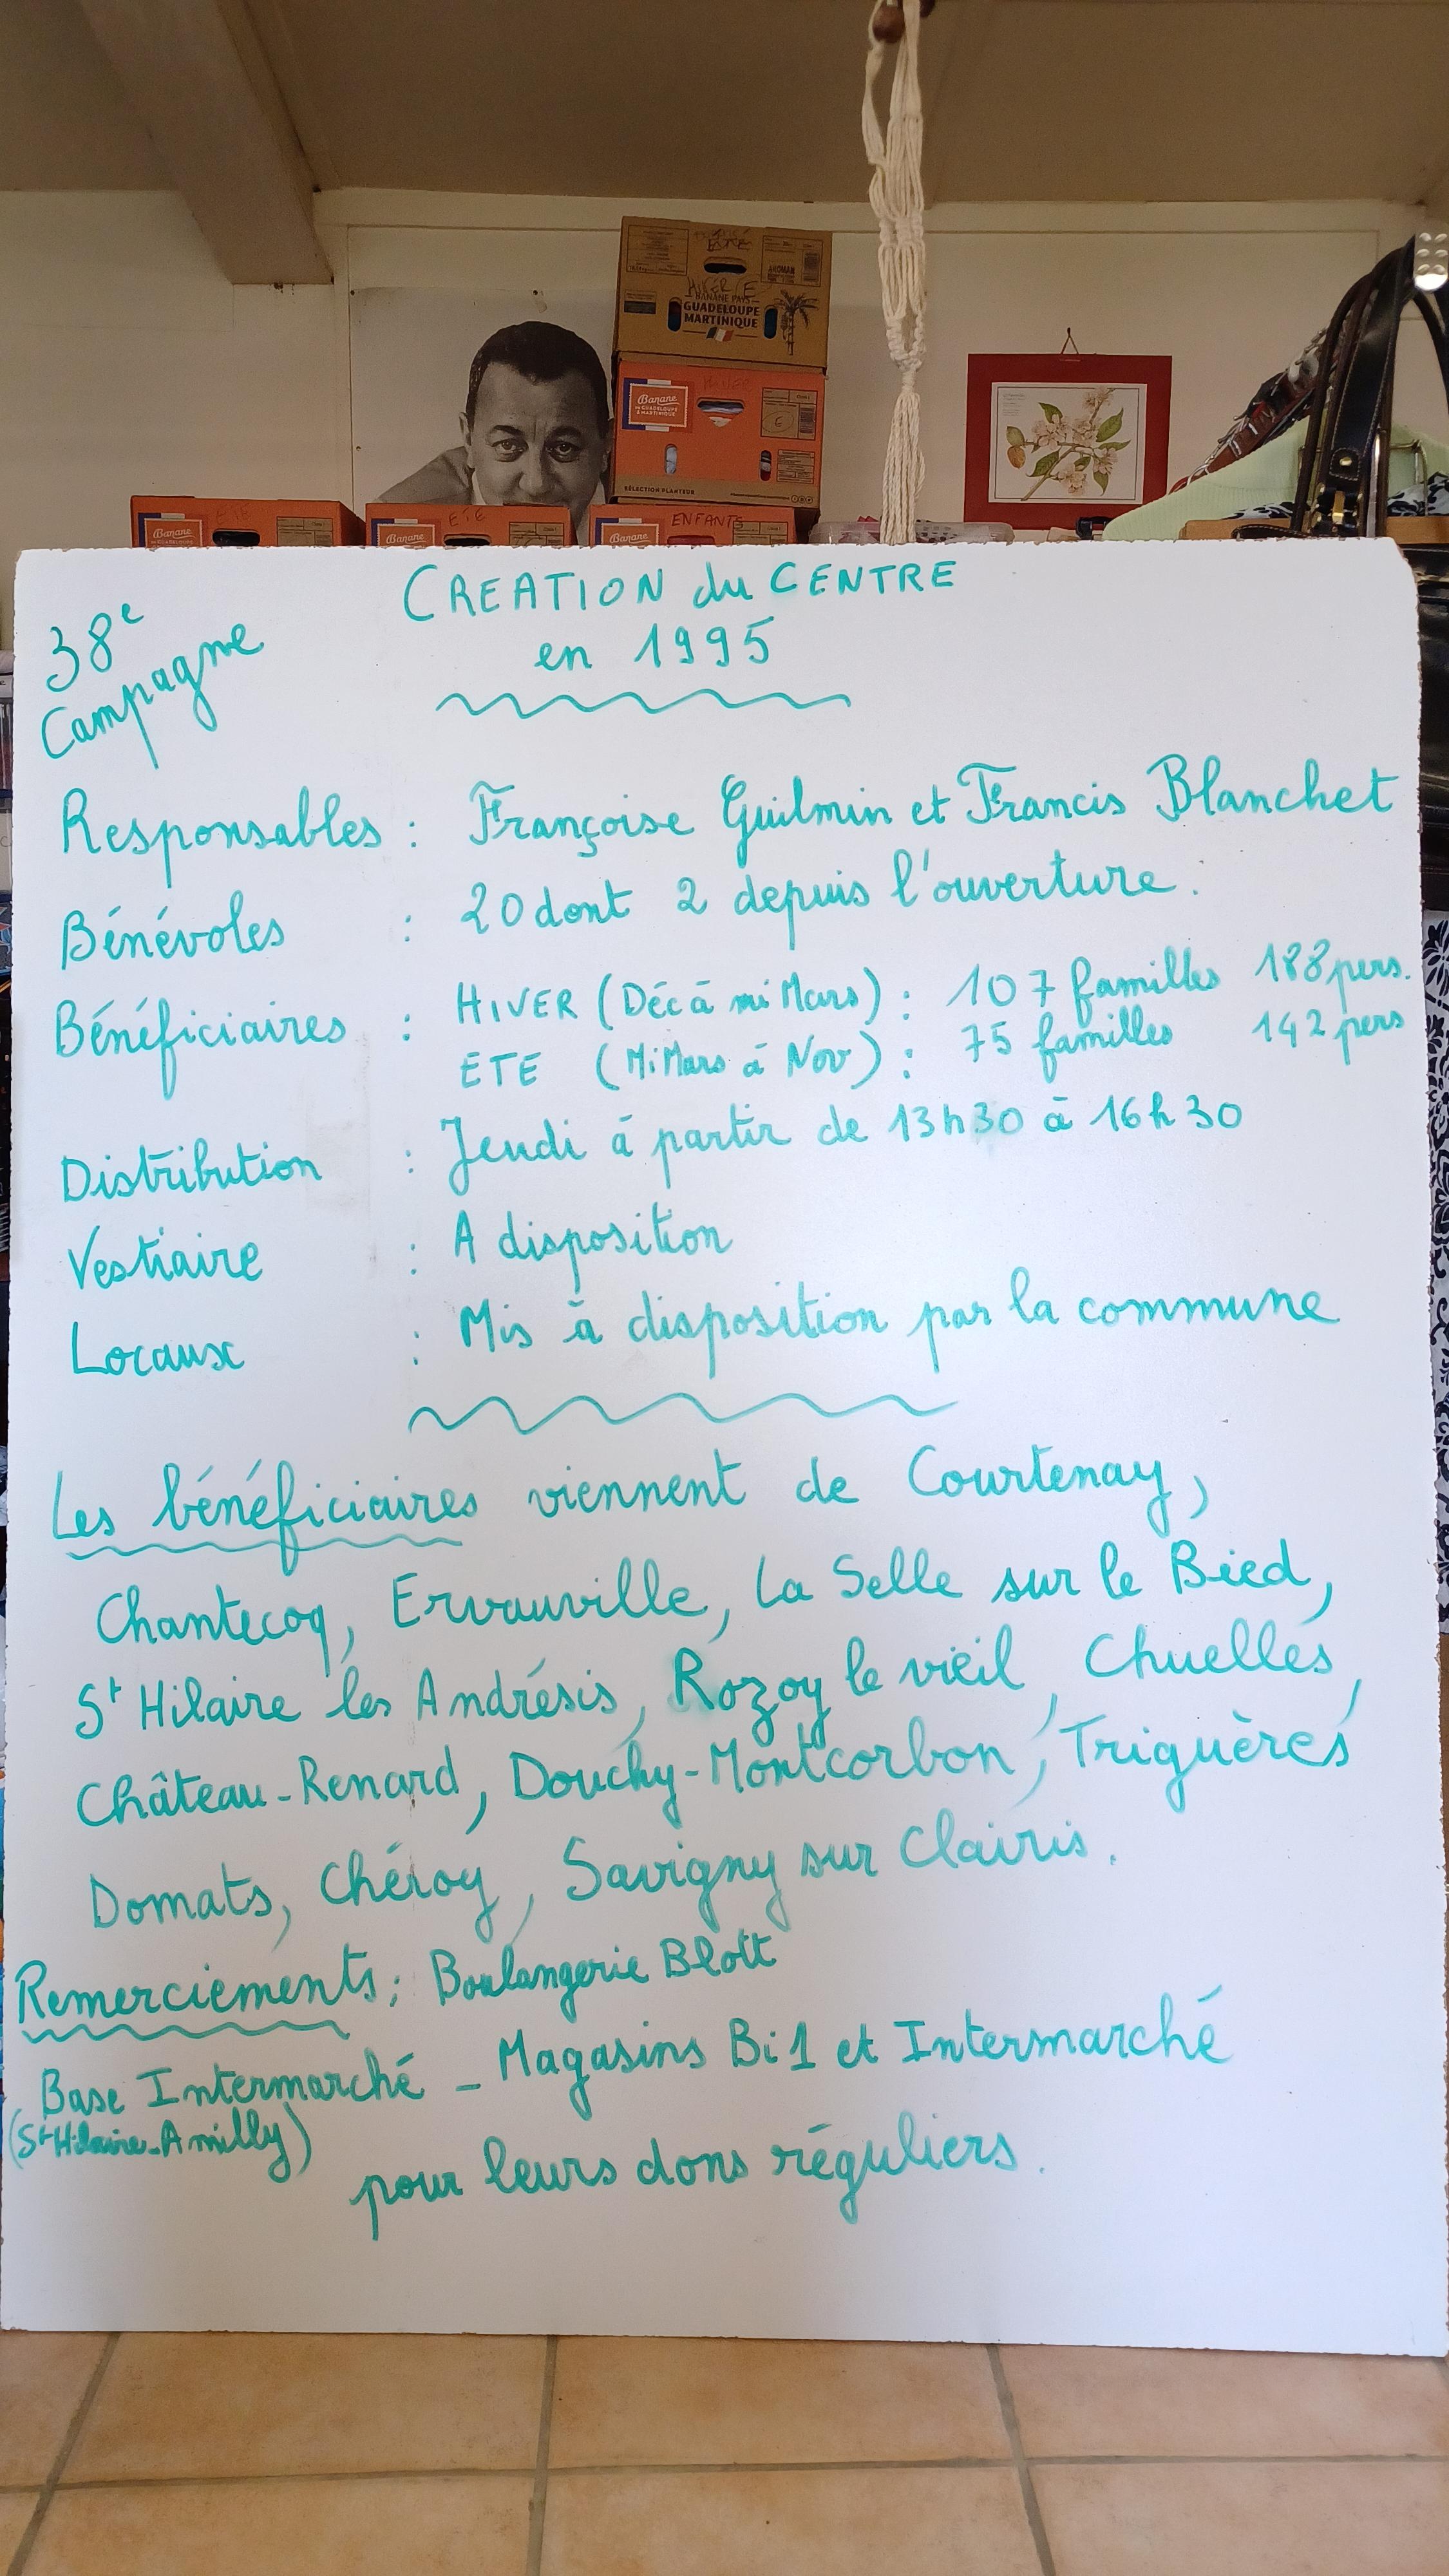 ETE
HIVER E
BANANE PAYS
GUADELOUPE
MARTINIQUE
HIVER
Banane
DE GUADELOUPE
& MARTINIQUE
SÉLECTION PLANTEUR
ETE
Banane
ETE
Banane
ENFANTS
Banane
38e
Campagne
CREATION du CENTRE
en 1995
Responsables : Françoise Guilmin et Francis Blanchet
Bénévoles : 20 dont 2 depuis l'ouverture.
Bénéficiaires : HIVER (Déc à mi Mars) : 107 familles 188 pers.
ETE (Mi Mars à Nov) : 75 familles 142 pers
Distribution : Jeudi à partir de 13h30 à 16h30
Vestiaire : A disposition
Locaux : Mis à disposition par la commune
Les bénéficiaires viennent de Courtenay,
Chantecoq, Ervauville, La Selle sur le Bied,
St Hilaire les Andrésis, Rozoy le vieil, Chuelles,
Château-Renard, Douchy-Montcorbon, Triguères
Domats, Chéroy, Savigny sur Clairis.
Remerciements : Boulangerie Blott
Base Intermarché - Magasins Bi1 et Intermarché
(St Hilaire-Amilly)
pour leurs dons réguliers.